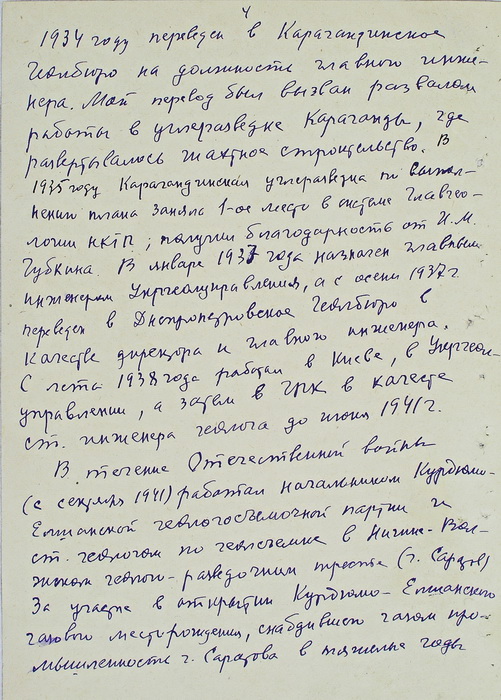 4
1934 году переведен в Карагандинское
Геолбюро на должность главного инже-
нера. Мой перевод был вызван развалом
работы в углеразведке Караганды, где
развертывалось шахтное строительство. В
1935 году Карагандинская углеразведка по выпол-
нению плана заняла 1-ое место в системе Главгео-
логии НКТП; получил благодарность от И.М.
Губкина. В январе 1937 года назначен главным
инженером Укргеолуправления, а с осени 1937 г
переведен в Днепропетровское Геолбюро в
качестве директора и главного инженера.
С лета 1938 года работал в Киеве, в Укргеол-
управлении, а затем в в качестве
ст. инженера геолога до июня 1941 г.
В течение Отечественной войны
(с 1941) работал начальником Курдюмо-
Елшанской геологосъемочной партии и
ст. геологом по геолсъемке в Нижне-Вол-
жском геолого-разведочном тресте (г. Саратов)
За участие в открытии Курдюмо-Елшанского
газового месторождения, снабдившего газом про-
мышленность г. Саратова в тяжелые годы